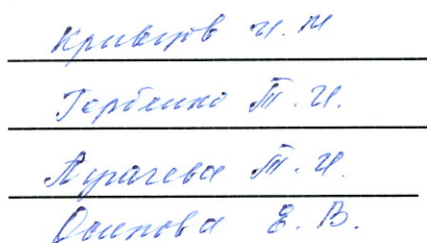 Кривцов И.И
Горбенко Т.И.
Пугачева Т.И.
Осипова Е.В.